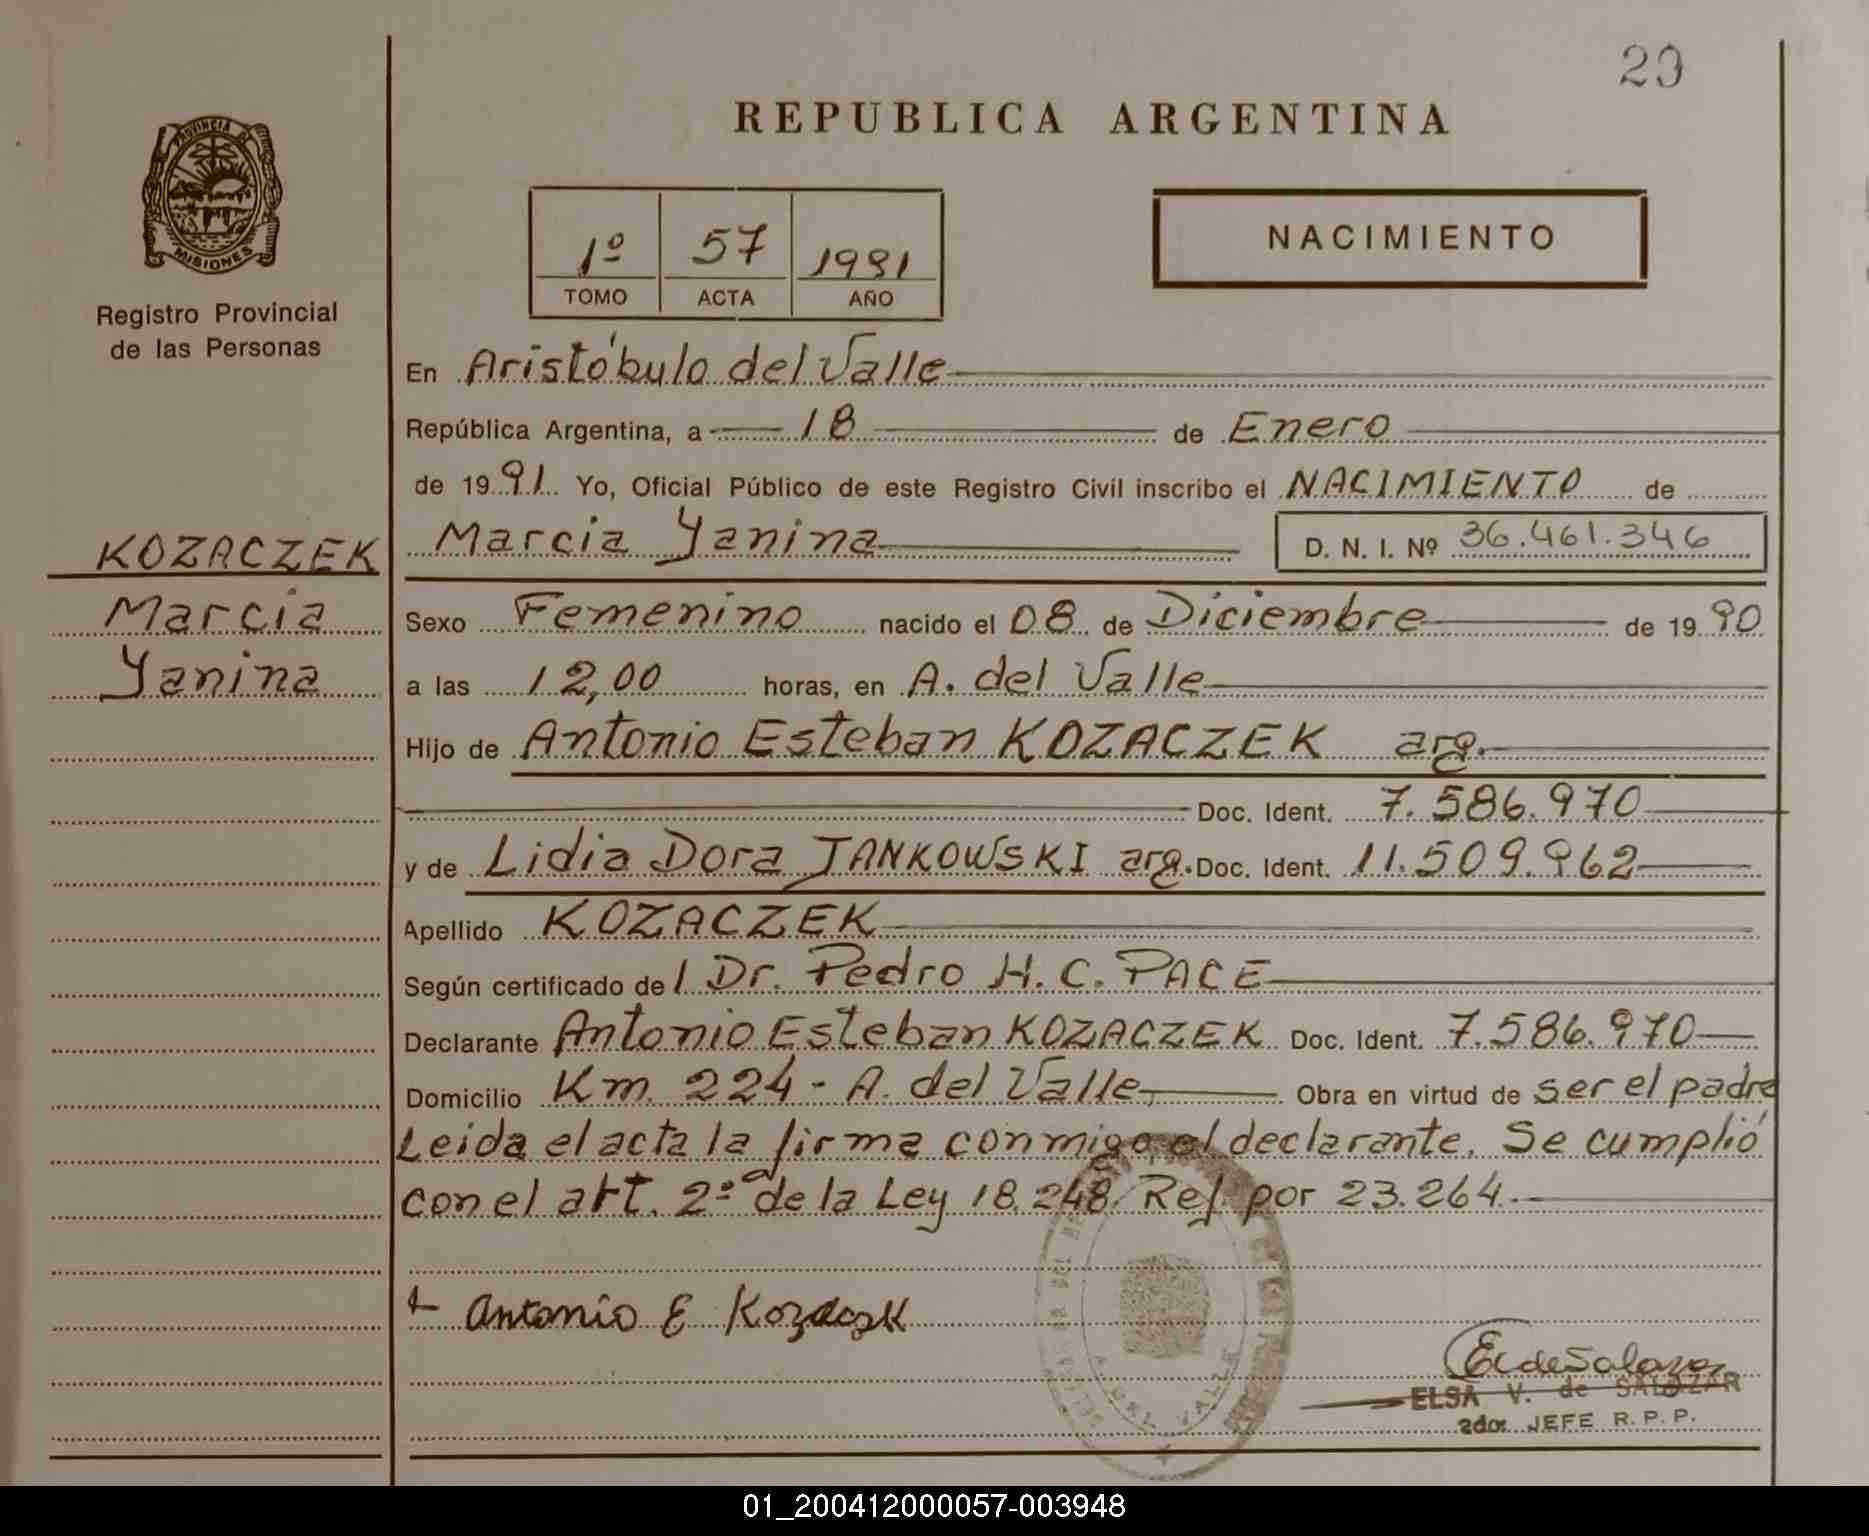 29
REPUBLICA ARGENTINA
PROVINCIA DE
MISIONES
Registro Provincial
de las Personas
1º 57 1991
TOMO ACTA AÑO
NACIMIENTO
En Aristóbulo del Valle
República Argentina, a 18 de Enero
de 1991. Yo, Oficial Público de este Registro Civil inscribo el NACIMIENTO de
KOZACZEK
Marcia
Yanina
Marcia Yanina D. N. I. Nº 36.461.346
Sexo Femenino nacido el 08 de Diciembre de 1990
a las 12,00 horas, en A. del Valle
Hijo de Antonio Esteban KOZACZEK arg.
Doc. Ident. 7.586.970
y de Lidia Dora JANKOWSKI arg. Doc. Ident. 11.509.962
Apellido KOZACZEK
Según certificado del Dr. Pedro H. C. PACE
Declarante Antonio Esteban KOZACZEK Doc. Ident. 7.586.970
Domicilio Km. 224 - A. del Valle, Obra en virtud de ser el padre
Leida el acta la firma conmigo el declarante. Se cumplió
con el art. 2º de la Ley 18.248 Ref. por 23.264.
Antonio E Kozaczek
A. DEL VALLE
E V de Salazar
ELSA V. de SALAZAR
2do. JEFE R. P. P.
01_200412000057-003948